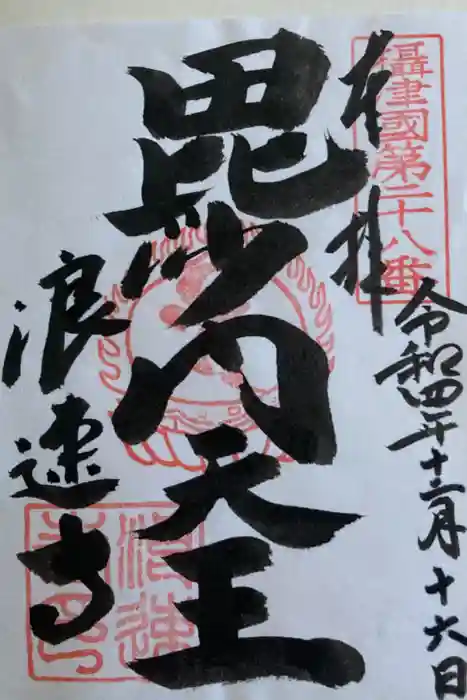 攝津國第二十八番
奉拝
令和四年十二月十六日
毘沙門天王
浪速寺
浪速
寺印